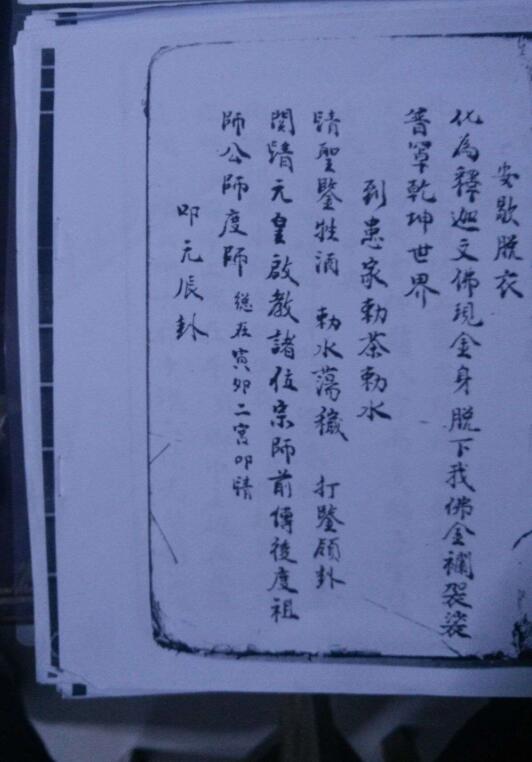 安歇脱衣
化為釋迦文佛現金身脱下我佛金襴袈裟
普罩乾坤世界
到患家勅茶勅水
請聖鑒牲酒 勅水蕩穢 打鑒領卦
関請元皇啟教諸位宗師前傳後度祖
師公師度師 總在寅卯二宮叩請
叩元辰卦